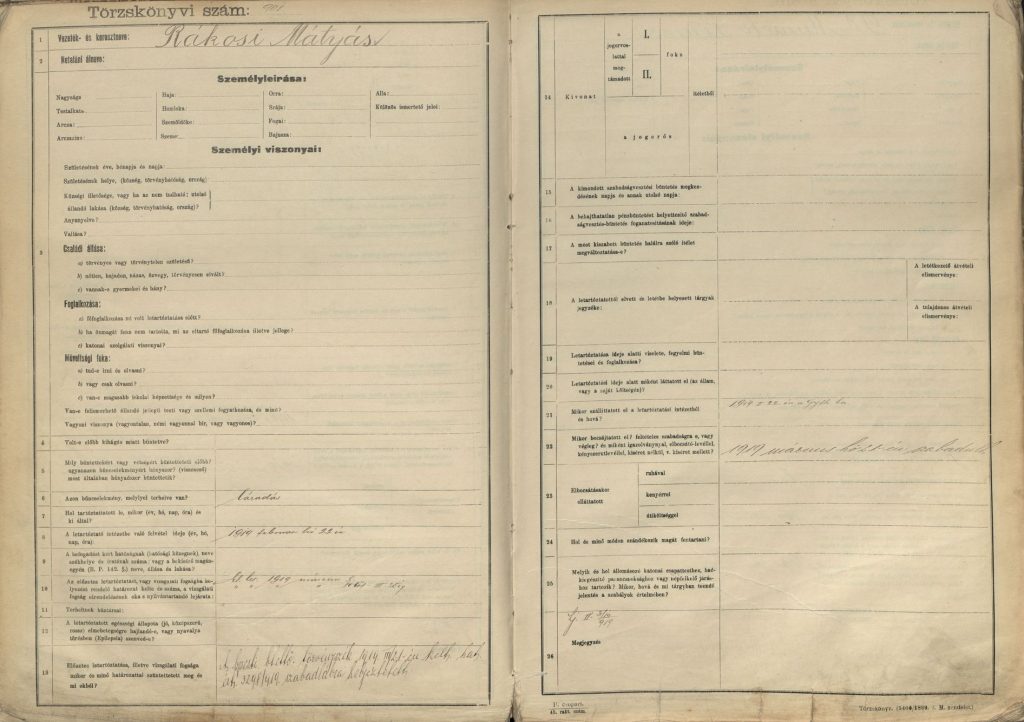 Törzskönyvi szám:
1 Vezeték- és keresztneve: Rákosi Mátyás
2 Netalási álneve:
Személyleírása:
Nagysága Haja: Orra: Álla:
Testalkata: Homloka: Szája: Különös ismertető jelei:
Arcza: Szemöldöke: Fogai:
Arczszíne: Szeme: Bajusza:
Személyi viszonyai:
Születésének éve, hónapja és napja:
Születésének helye, (község, törvényhatóság, ország)
Községi illetősége, vagy ha az nem tudható: utolsó
állandó lakása (község, törvényhatóság, ország)?
Anyanyelve?
Vallása?
3 Családi állása:
a) törvényes vagy törvénytelen születésű?
b) nőtlen, hajadon, házas, özvegy, törvényesen elvált?
c) vannak-e gyermekei és hány?
Foglalkozása:
a) főfoglalkozása mi volt letartóztatása előtt?
b) ha önmagát fenn nem tartotta, mi az eltartó főfoglalkozása illetve jellege?
c) katonai szolgálati viszonyai?
Műveltségi foka:
a) tud-e írni és olvasni?
b) vagy csak olvasni?
c) van-e magasabb iskolai képzettsége és milyen?
Van-e felismerhető állandó jellegű testi vagy szellemi fogyatkozása, és minő?
Vagyoni viszonya (vagyontalan, némi vagyonnal bir, vagy vagyonos)?
4 Volt-e előbb kihágás miatt büntetve?
5 Mily büntettekért vagy vétségért büntettetett előbb?
ugyanazon bűncselekményért hányszor? (visszaeső)
most általában hányadszor büntettetik?
6 Azon bűncselekmény, melylyel terhelve van? lázadás
7 Hol tartóztattatott le, mikor (év, hó, nap, óra) és
ki által?
8 A letartóztató intézetbe való felvétel ideje (év, hó,
nap, óra): 1919 február hó 22 én
9 A befogadást kért hatóságnak (hatósági közegnek), neve
székhelye és iratának száma; vagy a bekísérő magán-
egyén (B. P. 142. §.) neve, állása és lakása?
10 Az előzetes letartóztatást, vagy vizsgálati fogságba
helyezést rendelő határozat kelte és száma, a vizsgálati
fogság elrendelésének oka s nyilvántartandó lejárata: 1919 március
11 Terheltnek bűntársai:
12 A letartóztatott egészségi állapota (jó, középszerű,
rossz) elmebetegségre hajlandó-e, vagy nyavalya
törésben (Epilepsia) szenved-e?
13 Előzetes letartóztatása, illetve vizsgálati fogsága
mikor és minő határozattal szüntettetett meg és
mi okból? A bpesti büntető törvényszék 1919
szabadlábra helyeztetett
14 Kivonat
a jogorvos-
lattal
meg-
támadott
I.
II.
foku
a jogerős
ítéletből
15 A kimondott szabadságvesztési büntetés megkez-
désének napja és annak utolsó napja:
16 A behajthatatlan pénzbüntetést helyettesítő szabad-
ságvesztés-büntetés foganatosításának ideje:
17 A most kiszabott büntetés halálra szóló ítélet
megváltoztatása-e?
18 A letartóztatottól elvett és letétbe helyezett tárgyak
jegyzéke:
A letétkezelő átvételi
elismervénye:
A tulajdonos átvételi
elismervénye:
19 Letartóztatása ideje alatti viselete, fegyelmi bün-
tetései és foglalkozása?
20 Letartóztatási ideje alatt miként láttatott el (az állam,
vagy a saját költségén)?
21 Mikor szállíttatott el a letartóztatási intézetből
és hová?
22 Mikor bocsájtatott el? feltételes szabadságra e, vagy
végleg? és miként igazolványnyal, elbocsátó-levéllel,
kényszerútlevéllel, kíséret nélkül, v. kíséret mellett? 1919 március szabadult
23 Elbocsátásakor
elláttatott
ruhával
kenyérrel
útiköltséggel
24 Hol és minő módon szándékozik magát fentartani?
25 Melyik és hol állomásozó katonai csapattesthez, had-
kiegészítő parancsnoksághoz vagy népfölkelő járás-
hoz tartozik? Mikor, hová és mi tárgyban teendő
jelentés a szabályok értelmében?
26 Megjegyzés
F. csoport.
41. rakt. szám.
Törzskönyv. (5404/1899. I. M. rendelet.)